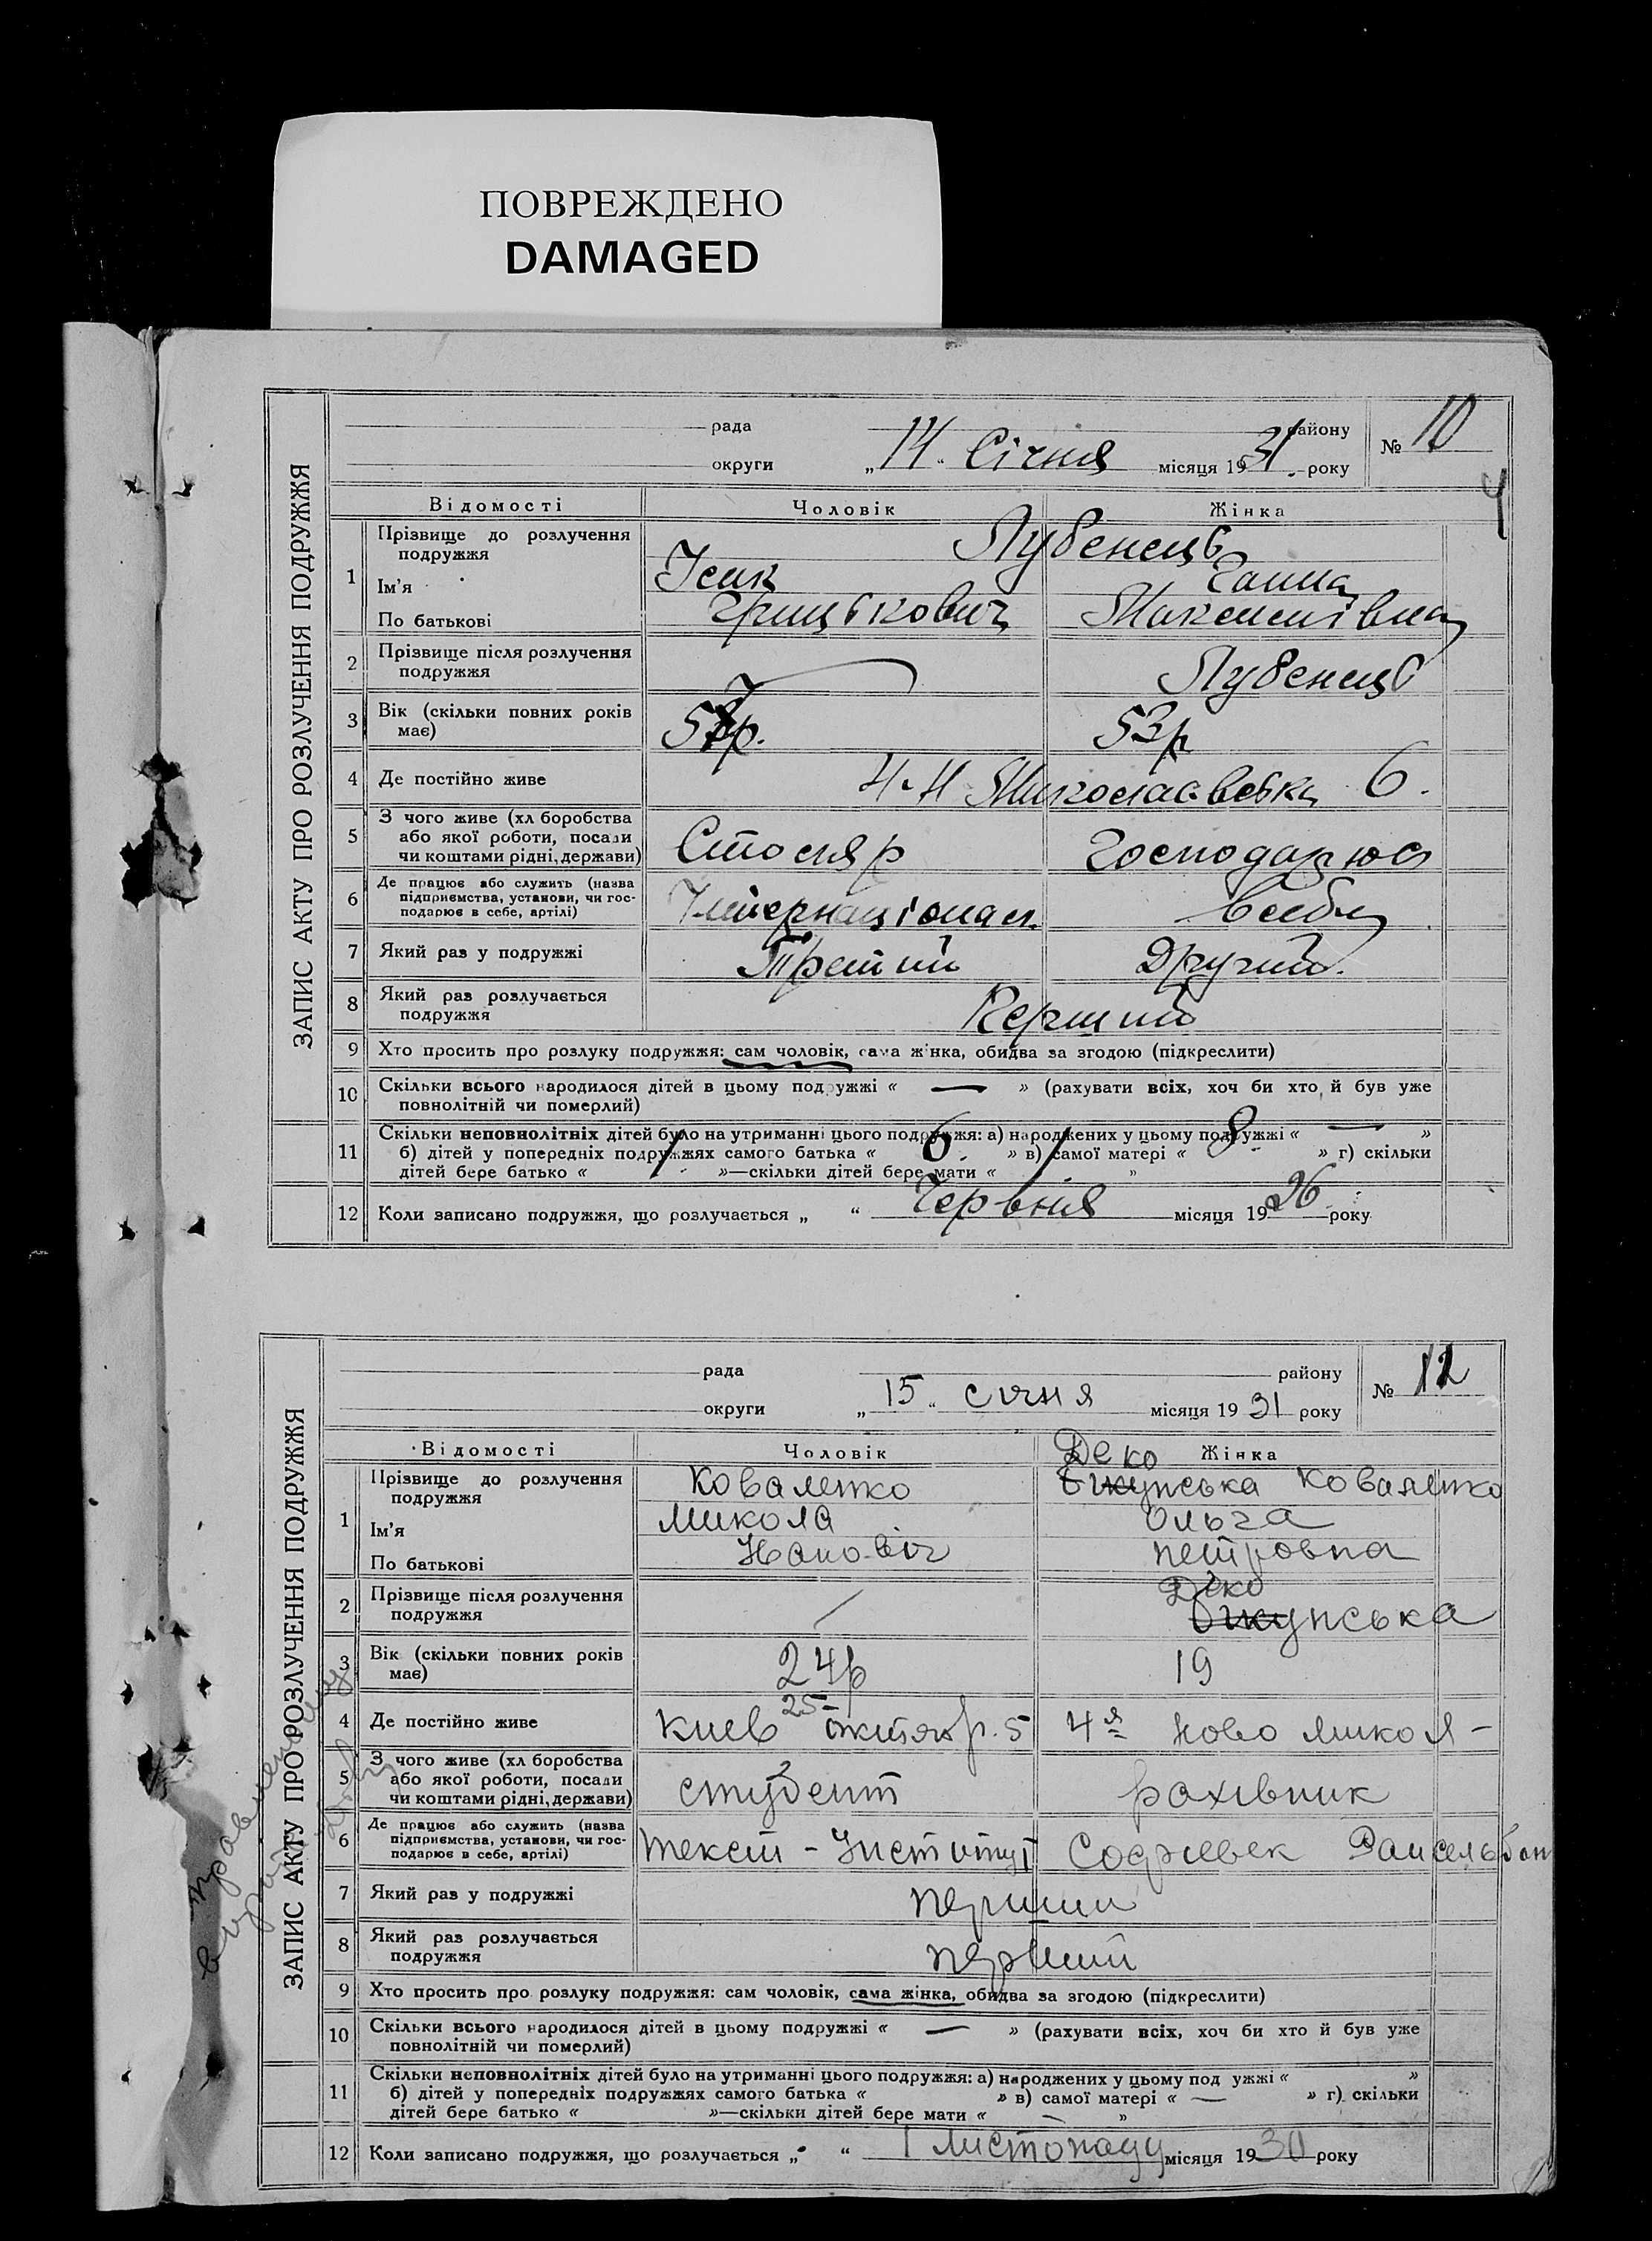 ПОВРЕЖДЕНО
DAMAGED
ЗАПИС АКТУ ПРО РОЗЛУЧЕННЯ ПОДРУЖЖЯ
рада району № 10
округи „14“ Січня місяця 1931. року
4
Відомості Чоловік Жінка
1 Прізвище до розлучення подружжя Лубенець
Ім'я Ганна
По батькові Грицькович Максимівна
2 Прізвище після розлучення подружжя Лубенець
3 Вік (скільки повних років має) 53р
4 Де постійно живе 4-Н 6.
5 З чого живе (хл боробства
або якої роботи, посади
чи коштами рідні, держави) Столяр Господарюя
6 Де працює або служить (назва
підприємства, установи, чи гос-
подарює в себе, артілі) Інтернаціонал. в себя
7 Який раз у подружжі Третий Другий.
8 Який раз розлучається
подружжя Перший
9 Хто просить про розлуку подружжя: сам чоловік, сама жінка, обидва за згодою (підкреслити)
10 Скільки всього народилося дітей в цьому подружжі « — » (рахувати всіх, хоч би хто й був уже
повнолітній чи померлий)
11 Скільки неповнолітніх дітей було на утриманні цього подружжя: а) народжених у цьому подружжі « — »
б) дітей у попередніх подружжях самого батька « » в) самої матері « » г) скільки
дітей бере батько « »—скільки дітей бере мати « »
12 Коли записано подружжя, що розлучається „ “ Червня місяця 1926 року
ЗАПИС АКТУ ПРО РОЗЛУЧЕННЯ ПОДРУЖЖЯ
рада району № 12
округи „15“ січня місяця 1931 року
Відомості Чоловік Деко Жінка
1 Прізвище до розлучення подружжя Коваленко Коваленко
Ім'я Микола Ольга
По батькові Петровна
2 Прізвище після розлучення Деко
подружжя
3 Вік (скільки повних років
має) 24р 19
4 Де постійно живе Киев 25 октябр. 5 4я Ново микол-
5 З чого живе (хл боробства
або якої роботи, посади
чи коштами рідні, держави) студент рахівник
6 Де працює або служить (назва
підприємства, установи, чи гос-
подарює в себе, артілі) текст-Институт
7 Який раз у подружжі перший
8 Який раз розлучається
подружжя перший
9 Хто просить про розлуку подружжя: сам чоловік, сама жінка, обидва за згодою (підкреслити)
10 Скільки всього народилося дітей в цьому подружжі « — » (рахувати всіх, хоч би хто й був уже
повнолітній чи померлий)
11 Скільки неповнолітніх дітей було на утриманні цього подружжя: а) народжених у цьому под ужжі « »
б) дітей у попередніх подружжях самого батька « » в) самої матері « — » г) скільки
дітей бере батько « »—скільки дітей бере мати « — »
12 Коли записано подружжя, що розлучається „ “ 1 листопаду місяця 1930 року